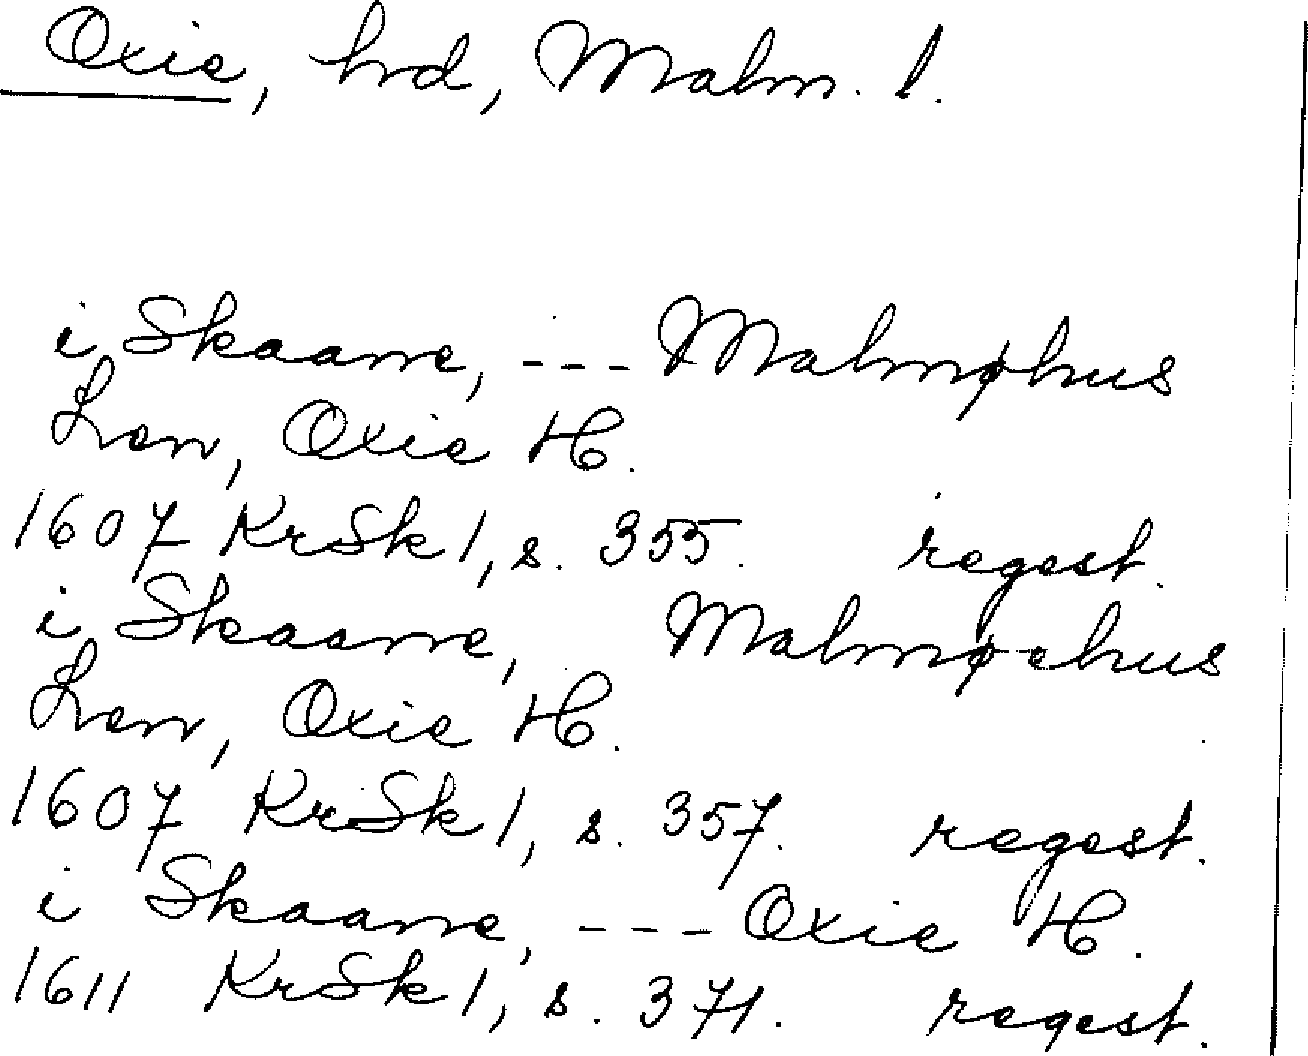 Oxie, hrd, Malm. l.
i Skaane, --- Malmøhus
Len, Oxie H.
1607 KrSk 1, s. 355. regest.
i Skaane, Malmøehus
Len, Oxie H.
1607 KrSk 1, s. 357. regest.
i Skaane, --- Oxie H.
1611 KrSk 1, s. 371. regest.